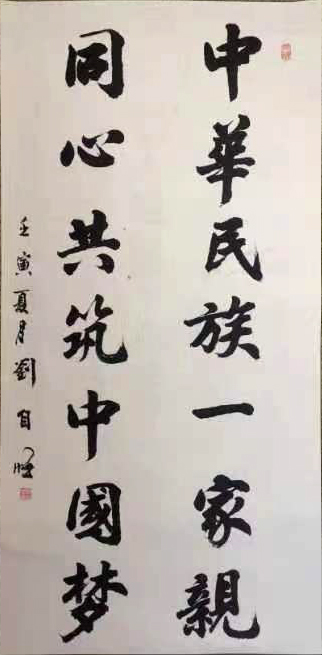 中華民族一家親
同心共筑中國梦
壬寅夏月劉自